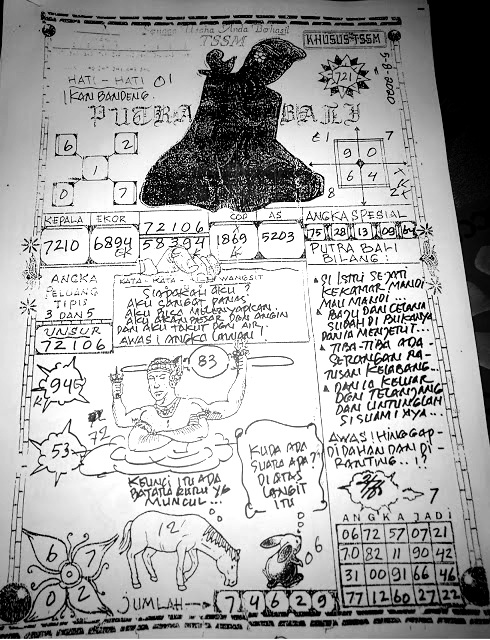 TSSM
KHUSUS TSSM
HATI - HATI 01
IKAN BANDENG
721
5-8-2020
PUTRA BALI
6 2
1
0 7
7
9 0
6 4
8
KEPALA EKOR 72106 COP AS ANGKA SPESIAL
7210 6894 58394 1869 5203 75 28 13 09 64
PUTRA BALI
BILANG:
ANGKA
PELUANG
TIPIS
3 DAN 5
UNSUR
72106
KATA - KATA WANGSIT
SIAPAKAH AKU?
AKU SANGAT PANAS
AKU BISA MELENYAPKAN
AKU AKAN BESAR DGN ANGIN
DAN AKU TAKUT DGN AIR
AWAS! ANGKA LAWAN!
SI ISTRI SEJATI
KEKAMAR MANDI
MAU MANDI...
BAJU DAN CELANA
SUDAH DI BUKANYA
DAN IA MENJERIT...
TIBA-TIBA ADA
SERONGAN RA-
TUSAN KELABANG...
DAN IA KELUAR
DGN TELANJANG
DAN UNTUNGLAH
SI SUAMI AYA...
AWAS! HINGGAP
DI DAHAN DAN DI
RANTING..!?
83
94
72
53
KUNCI ITU ADA
MUNCUL...
KUDA ADA
SUATU APA?
DI ATAS
LANGIT
ITU
12
06
7
6 7
0 2
ANGKA JADI
06 72 57 07 21
70 82 11 90 42
31 00 91 66 46
77 12 60 27 22
JUMLAH 7 4 6 2 9